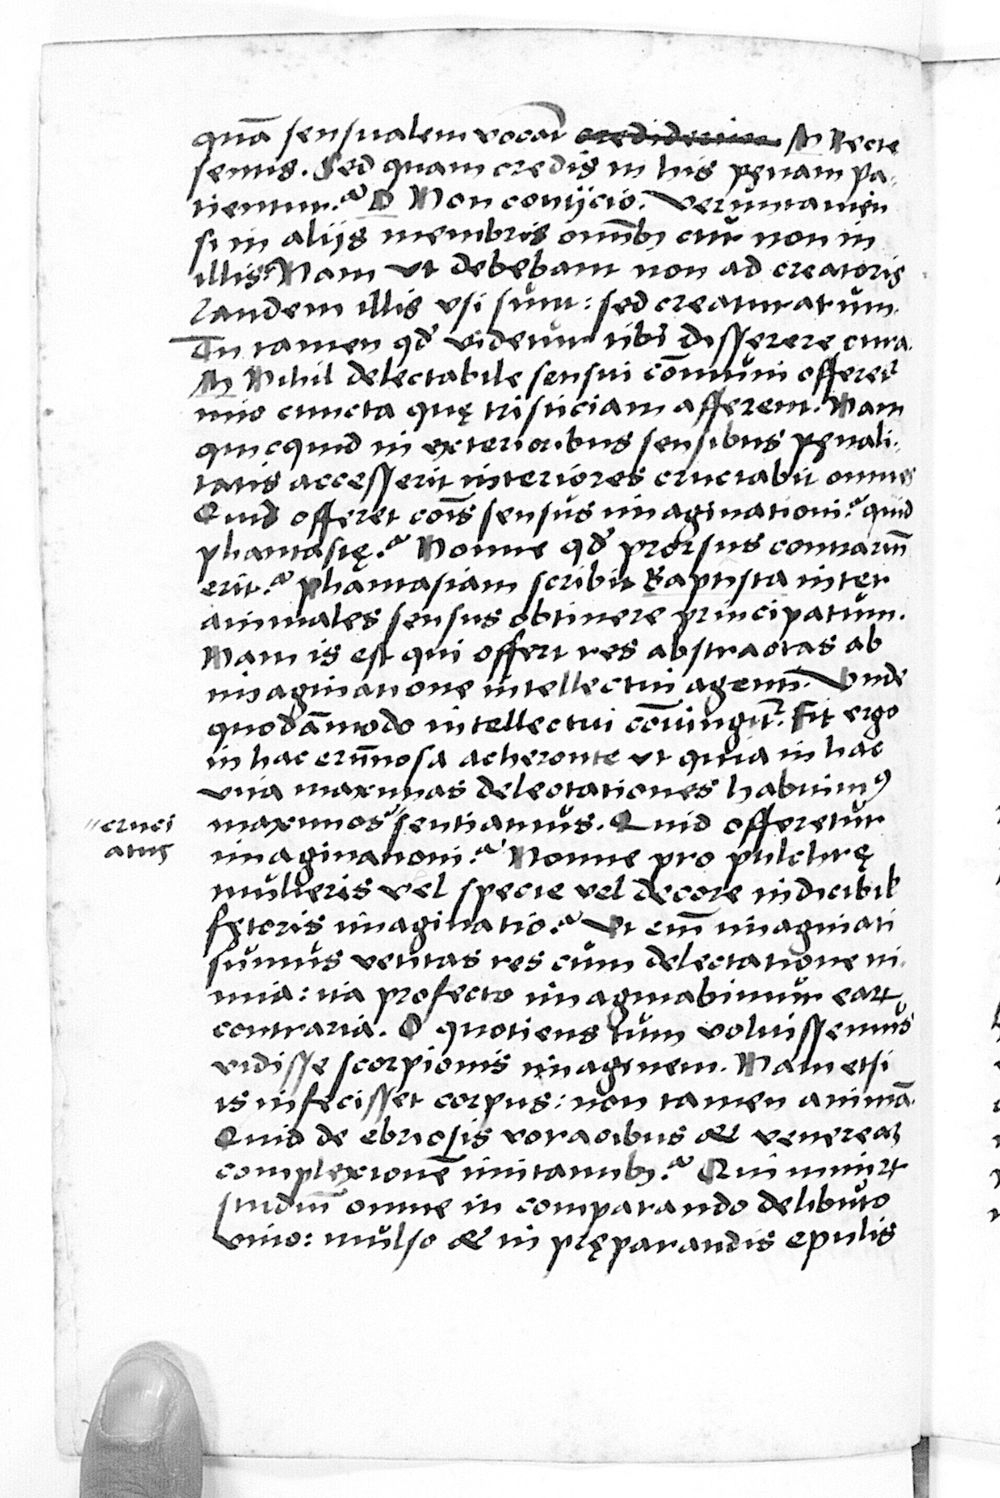 quā sensualem vocāt crediderim M Recte
sentis. Sed quam credis in his pęnam pa-
tientur? O Non conijcio. Veruntamen
si in alijs membris omībꝫ cur non in
illis? Nam ut debebant non ad creatoris
laudem illis usi sunt: sed creaturarum.
Tu tamen qđ videtur tibi disserere cura.
M Nihil delectabile sensui cōmuni offeret̄
imo cuncta quę tristiciam afferent. Nam
quicquid in exterioribus sensibus pęnali-
tatis accesserit interiores cructabit omnes
Quid offeret cōis sensus imaginationi? quid
phantasię? Nonne qđ prorsus contrariū
erit? Phantasiam scribit Baptista inter
animales sensus obtinere principatum.
Nam is est qui offert res abstractas ab
imaginatione intellectui agenti. Unde
quodāmodo intellectui cōiungit̄. Fit ergo
in hac erūnosa acheronte ut quia in hac
vita maximas delectationes habuimꝰ
maximos sentiamus. Quid offeretur
imaginationi? Nonne pro pulchrę
mulieris vel specie vel decore indicibil
fętoris imaginatio? Ut em̄ imaginati
sumus vetitas res cum delectatione ni-
mia: ita profecto imaginabimur earꝝ
contraria. O quotiens tum voluissemus
vidisse scorpionis imaginem. Nam etsi
is infecisset corpus: non tamen animā.
Quid de ebriosis voracibus & venereaꝫ
complexionē imitantibꝫ? Qui niniꝝt
studiū omne in comparando delibuto
vino: mulso & in pręparandis epulis
"cruci
atus